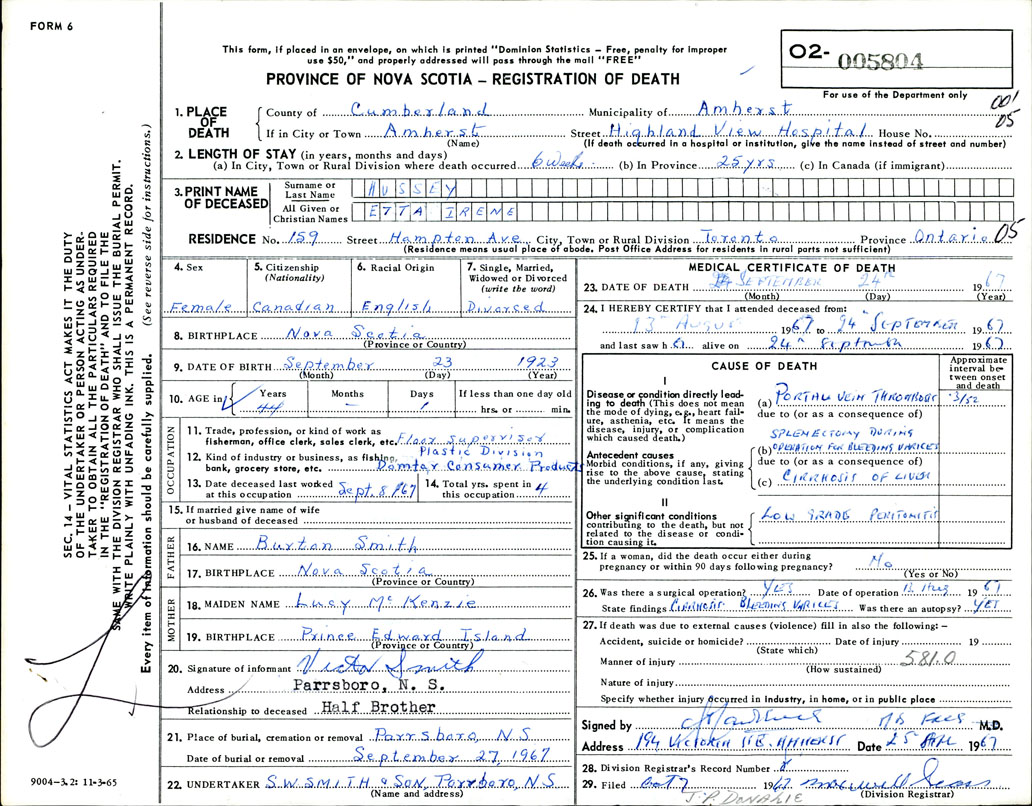 FORM 6
This form, if placed in an envelope, on which is printed "Dominion Statistics – Free, penalty for improper
use $50," and properly addressed will pass through the mail "FREE"
PROVINCE OF NOVA SCOTIA – REGISTRATION OF DEATH
O2- 005804
For use of the Department only
001
05
1. PLACE OF DEATH
County of Cumberland Municipality of Amherst
If in City or Town Amherst Street Highland View Hospital House No.
(Name) (If death occurred in a hospital or institution, give the name instead of street and number)
2. LENGTH OF STAY (in years, months and days)
(a) In City, Town or Rural Division where death occurred 6 weeks (b) In Province 25 yrs (c) In Canada (if immigrant)
3. PRINT NAME OF DECEASED
Surname or Last Name HUSSEY
All Given or Christian Names ETTA IRENE
RESIDENCE No. 159 Street Hampton Ave. City, Town or Rural Division Toronto Province Ontario 05
(Residence means usual place of abode. Post Office Address for residents in rural parts not sufficient)
4. Sex
Female
5. Citizenship (Nationality)
Canadian
6. Racial Origin
English
7. Single, Married, Widowed or Divorced (write the word)
Divorced
8. BIRTHPLACE Nova Scotia
(Province or Country)
9. DATE OF BIRTH September 23 1923
(Month) (Day) (Year)
10. AGE in Years Months Days If less than one day old
44 – 1 hrs. or min.
OCCUPATION
11. Trade, profession, or kind of work as
fisherman, office clerk, sales clerk, etc. Floor Supervisor
Plastic Division
12. Kind of industry or business, as fishing,
bank, grocery store, etc. Domtar Consumer Products
13. Date deceased last worked
at this occupation Sept. 8/67
14. Total yrs. spent in
this occupation 4
15. If married give name of wife
or husband of deceased
FATHER
16. NAME Burton Smith
17. BIRTHPLACE Nova Scotia
(Province or Country)
MOTHER
18. MAIDEN NAME Lucy McKenzie
19. BIRTHPLACE Prince Edward Island
(Province or Country)
20. Signature of informant Victor Smith
Address Parrsboro, N. S.
Relationship to deceased Half Brother
21. Place of burial, cremation or removal Parrsboro, N.S.
Date of burial or removal September 27, 1967
22. UNDERTAKER S.W. SMITH & SON, Parrsboro, N.S.
(Name and address)
9004-3.2: 11-3-65
MEDICAL CERTIFICATE OF DEATH
23. DATE OF DEATH SEPTEMBER 24th 1967
(Month) (Day) (Year)
24. I HEREBY CERTIFY that I attended deceased from:
13th August 1967 to 24th September 1967
and last saw h alive on 24th September 1967
CAUSE OF DEATH
Approximate interval between onset and death
I
Disease or condition directly leading to death (This does not mean
the mode of dying, e.g., heart failure, asthenia, etc. It means the
disease, injury, or complication
which caused death.)
(a) PORTAL VEIN THROMBOSIS 3/52
due to (or as a consequence of)
SPLENECTOMY DURING
(b) OPERATION FOR BLEEDING VARICES
due to (or as a consequence of)
(c) CIRRHOSIS OF LIVER
Antecedent causes
Morbid conditions, if any, giving
rise to the above cause, stating
the underlying condition last.
II
Other significant conditions
contributing to the death, but not
related to the disease or condition causing it.
LOW GRADE PERITONITIS
25. If a woman, did the death occur either during
pregnancy or within 90 days following pregnancy? No
(Yes or No)
26. Was there a surgical operation? YES Date of operation Aug 1967
State findings CIRRHOSIS BLEEDING VARICES Was there an autopsy? YES
27. If death was due to external causes (violence) fill in also the following: –
Accident, suicide or homicide? Date of injury 19
(State which)
Manner of injury 581.0
(How sustained)
Nature of injury
Specify whether injury occurred in industry, in home, or in public place
Signed by M.D.
Address 194 VICTORIA ST E. AMHERST Date 25 1967
28. Division Registrar's Record Number
29. Filed Oct 7 1967
(Division Registrar)
J.P. DONAHIE
SEC. 14 – VITAL STATISTICS ACT MAKES IT THE DUTY
OF THE UNDERTAKER OR PERSON ACTING AS UNDER-
TAKER TO OBTAIN ALL THE PARTICULARS REQUIRED
IN THE "REGISTRATION OF DEATH" AND TO FILE THE
SAME WITH THE DIVISION REGISTRAR WHO SHALL ISSUE THE BURIAL PERMIT.
WRITE PLAINLY WITH UNFADING INK. THIS IS A PERMANENT RECORD.
Every item of information should be carefully supplied. (See reverse side for instructions.)